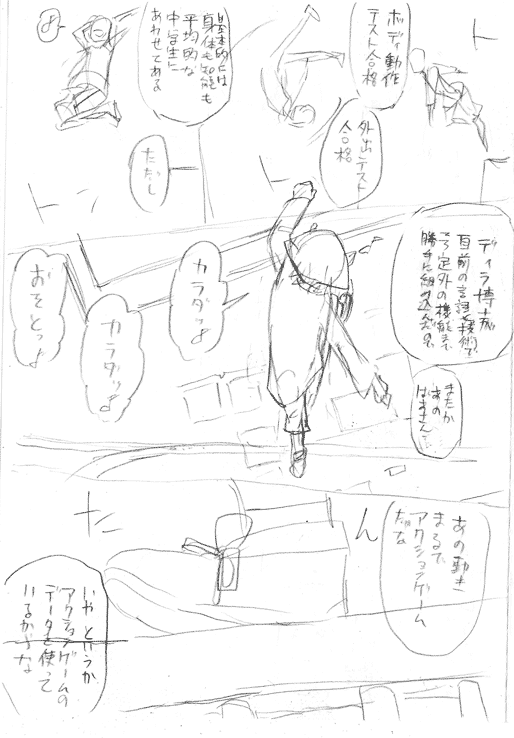 ボディ動作
テスト合格
外出テスト
合格
基本的には
身体も知能も
平均的な
中学生に
あわせてある
ただし
ディラ博士が
自前の言語と技術で
予定外の機能まで
勝手に組み込んだので
またか
あの
ばあさん…
カラダッよ
カラダッよ
おそとっよ
あの動き
まるで
アクションゲーム
だな
ん
いや というか
アクションゲームの
データを使って
いるからな